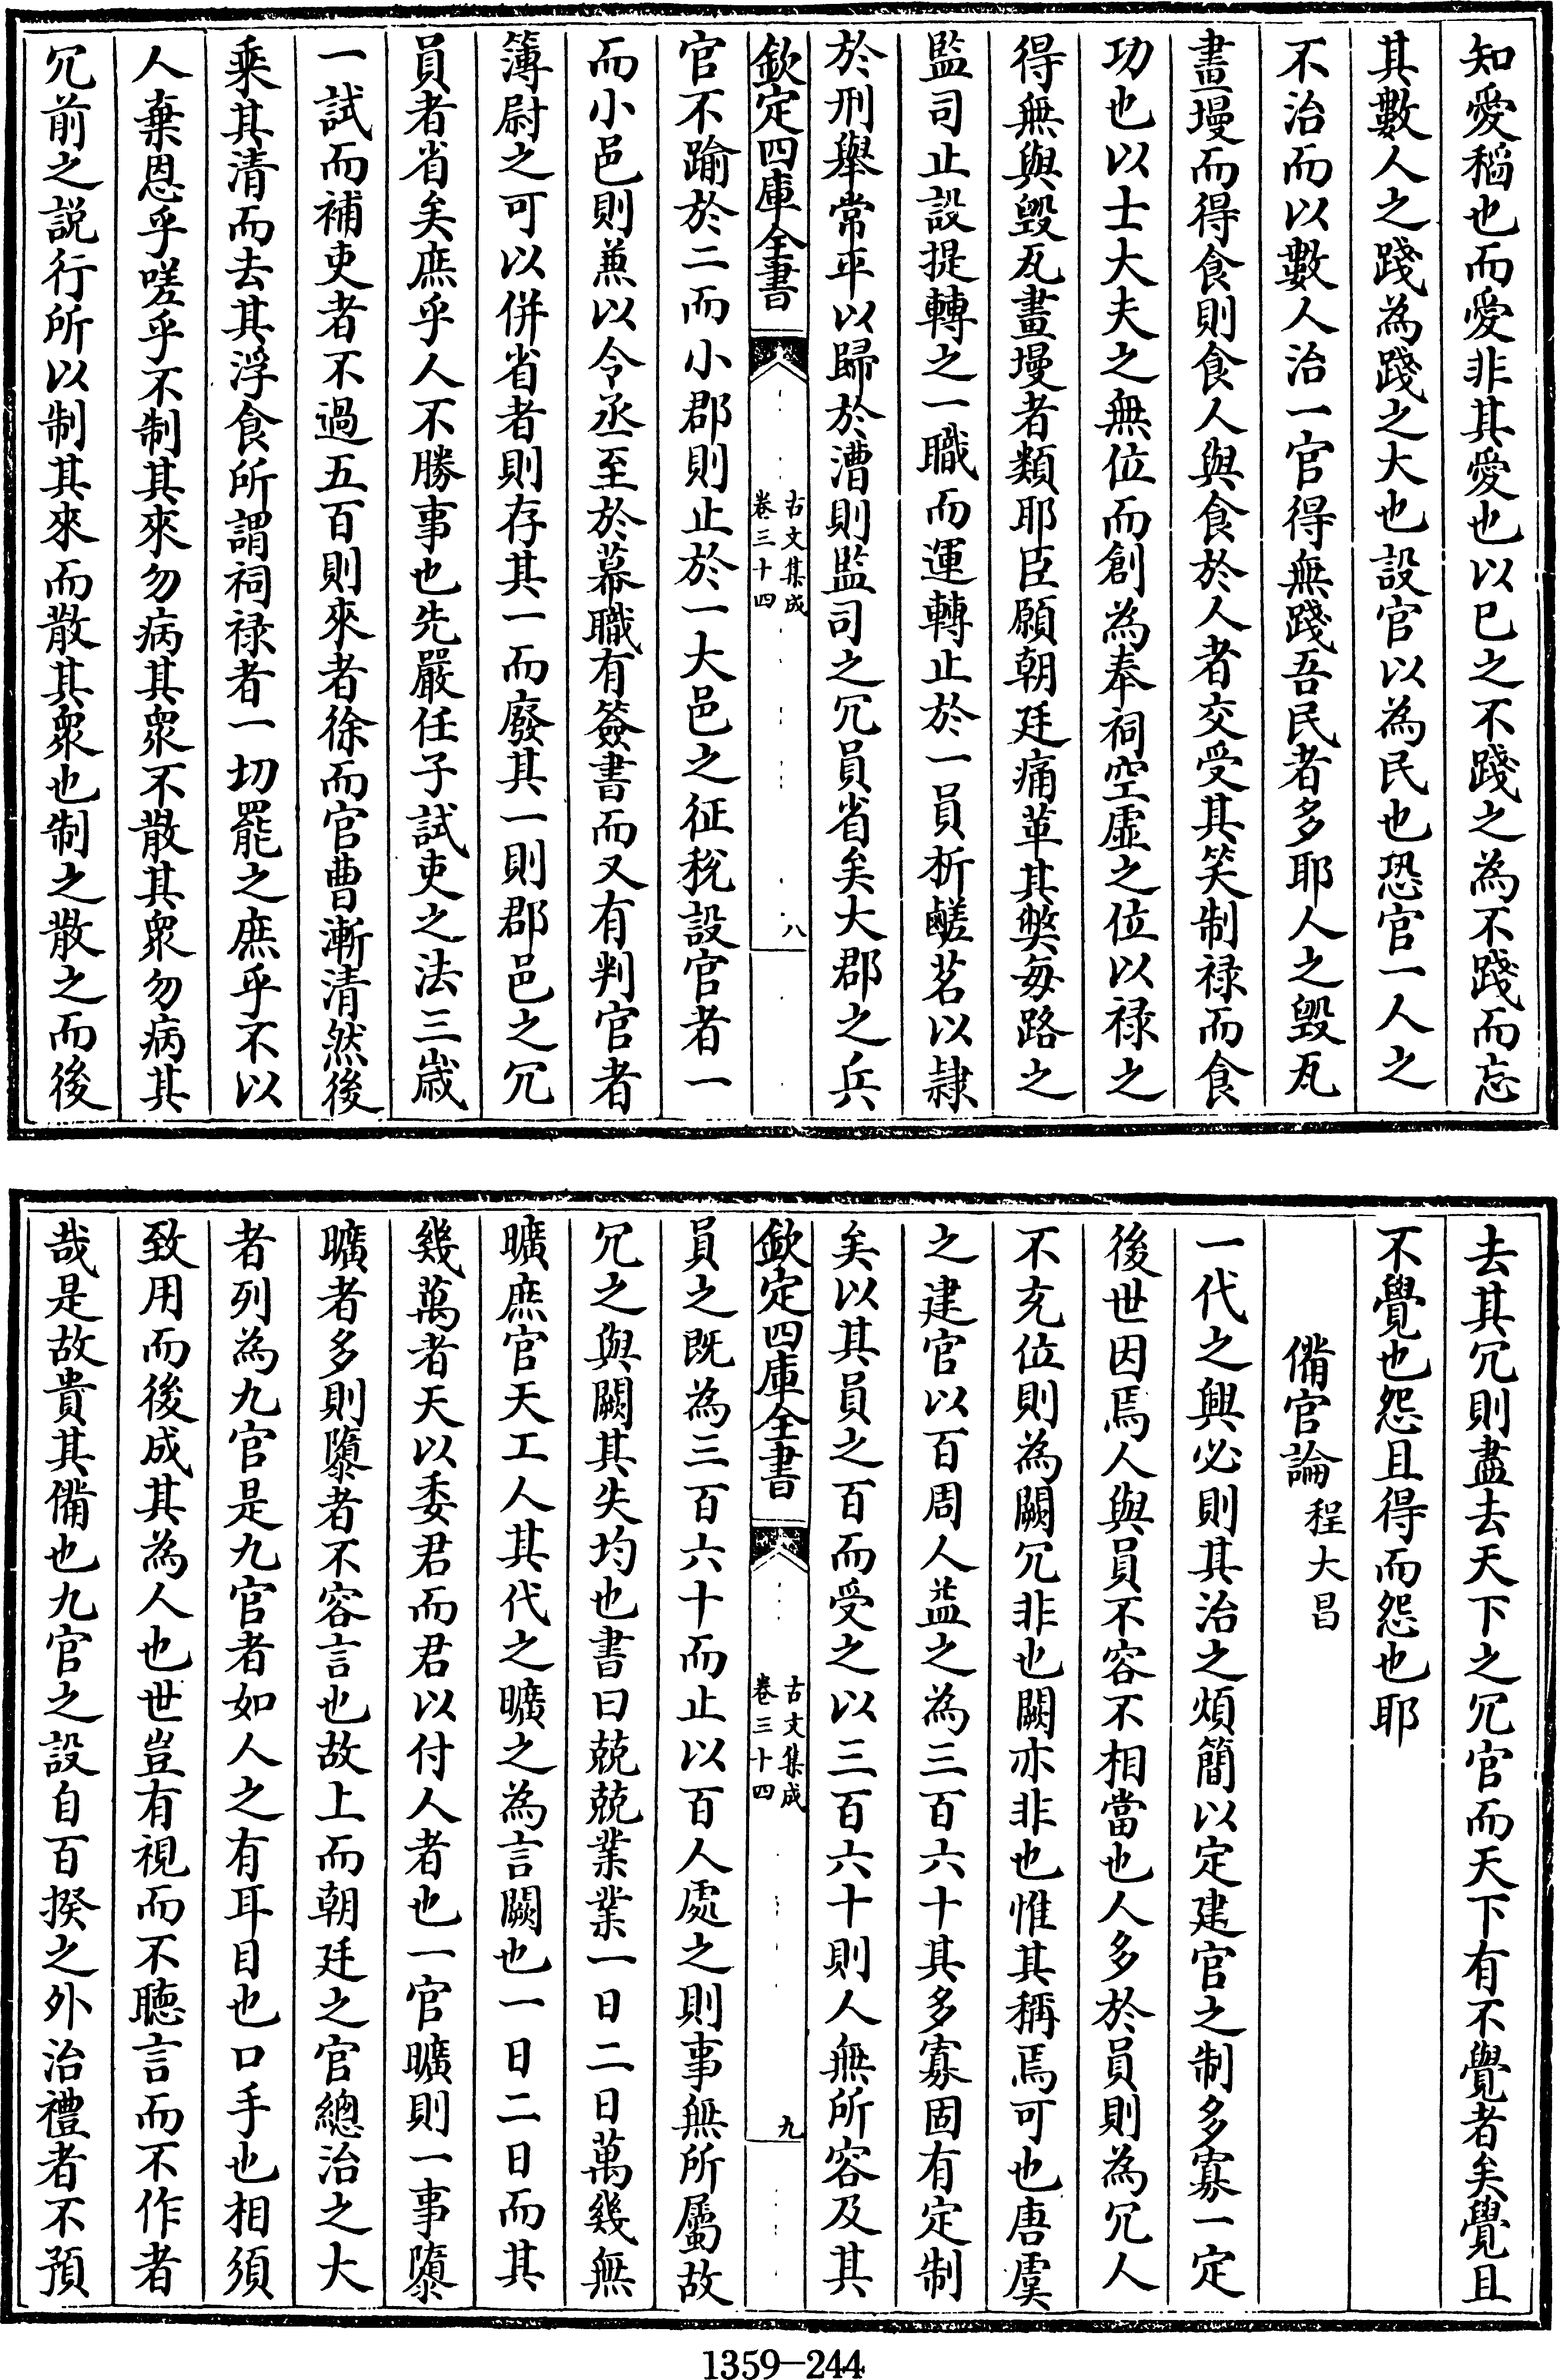 知愛稻也而愛非其愛也以已之不踐之為不踐而忘
其數人之踐為踐之大也設官以為民也恐官一人之
不治而以數人治一官得無踐吾民者多耶人之毀瓦
畫墁而得食則食人與食於人者交受其笑制禄而食
功也以士大夫之無位而創為奉祠空虛之位以禄之
得無與毀瓦畫墁者類耶臣願朝廷痛革其獘每路之
監司止設提轉之一職而運轉止於一員析鹺茗以隷
於刑舉常平以歸於漕則監司之冗員省矣大郡之兵
欽定四庫全書
古文集成
卷三十四
八
官不踰於二而小郡則止於一大邑之征稅設官者一
而小邑則兼以令丞至於幕職有簽書而又有判官者
簿尉之可以併省者則存其一而廢其一則郡邑之冗
員者省矣庶乎人不勝事也先嚴任子試吏之法三嵗
一試而補吏者不過五百則來者徐而官曹漸清然後
乘其清而去其浮食所謂祠禄者一切罷之庶乎不以
人棄恩乎嗟乎不制其來勿病其衆不散其衆勿病其
冗前之説行所以制其來而散其衆也制之散之而後
去其冗則盡去天下之冗官而天下有不覺者矣覺且
不覺也怨且得而怨也耶
備官論 程大昌
一代之興必則其治之煩簡以定建官之制多寡一定
後世因焉人與員不容不相當也人多於員則為冗人
不充位則為闕冗非也闕亦非也惟其稱焉可也唐虞
之建官以百周人益之為三百六十其多寡固有定制
矣以其員之百而受之以三百六十則人無所容及其
欽定四庫全書
古文集成
卷三十四
九
員之既為三百六十而止以百人處之則事無所屬故
冗之與闕其失均也書曰兢兢業業一日二日萬幾無
曠庶官天工人其代之曠之為言闕也一日二日而其
幾萬者天以委君而君以付人者也一官曠則一事隳
曠者多則隳者不容言也故上而朝廷之官總治之大
者列為九官是九官者如人之有耳目也口手也相須
致用而後成其為人也世豈有視而不聽言而不作者
哉是故貴其備也九官之設自百揆之外治禮者不預
1359-244